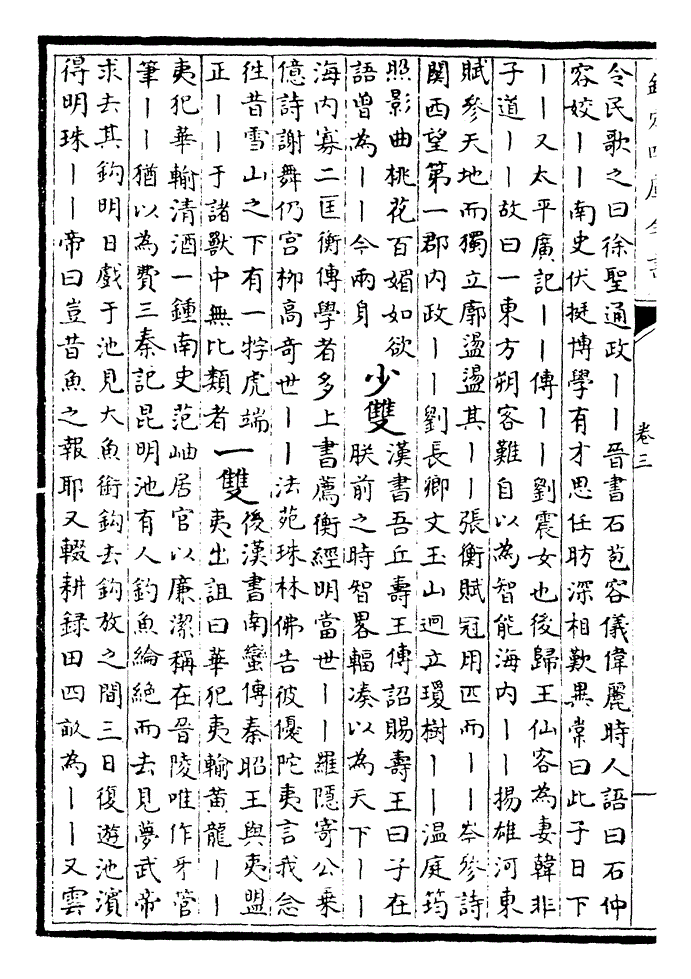 欽定四庫全書
卷三
一
令民歌之曰徐聖通政丨丨晉書石苞容儀偉麗時人語曰石仲
容姣丨丨南史伏挺博學有才思任昉深相歎異常曰此子日下
丨丨又太平廣記丨丨傳丨丨劉震女也後歸王仙客為妻韓非
子道丨丨故曰一東方朔客難自以為智能海内丨丨揚雄河東
賦參天地而獨立廓盪盪其丨丨張衡賦冠用匹而丨丨岑參詩
關西望第一郡内政丨丨劉長卿文玉山迥立瓊樹丨丨温庭筠
照影曲桃花百媚如欲
語曾為丨丨今兩身
少雙
漢書吾丘壽王傳詔賜壽王曰子在
朕前之時智畧輻凑以為天下丨丨
海内寡二匡衡傳學者多上書薦衡經明當世丨丨羅隱寄公乗
億詩謝舞仍宫栁高竒世丨丨法苑珠林佛告彼優陀夷言我念
徃昔雪山之下有一牸虎端
正丨丨于諸獸中無比類者
一雙
後漢書南蠻傳秦昭王與夷盟
夷出詛曰華犯夷輸黄龍丨丨
夷犯華輸清酒一鍾南史范岫居官以廉潔稱在晉陵唯作牙管
筆丨丨猶以為費三秦記昆明池有人釣魚綸絶而去見夢武帝
求去其鈎明日戯于池見大魚銜鈎去鈎放之間三日復遊池濱
得明珠丨丨帝曰豈昔魚之報耶又輟耕録田四畝為丨丨又雲